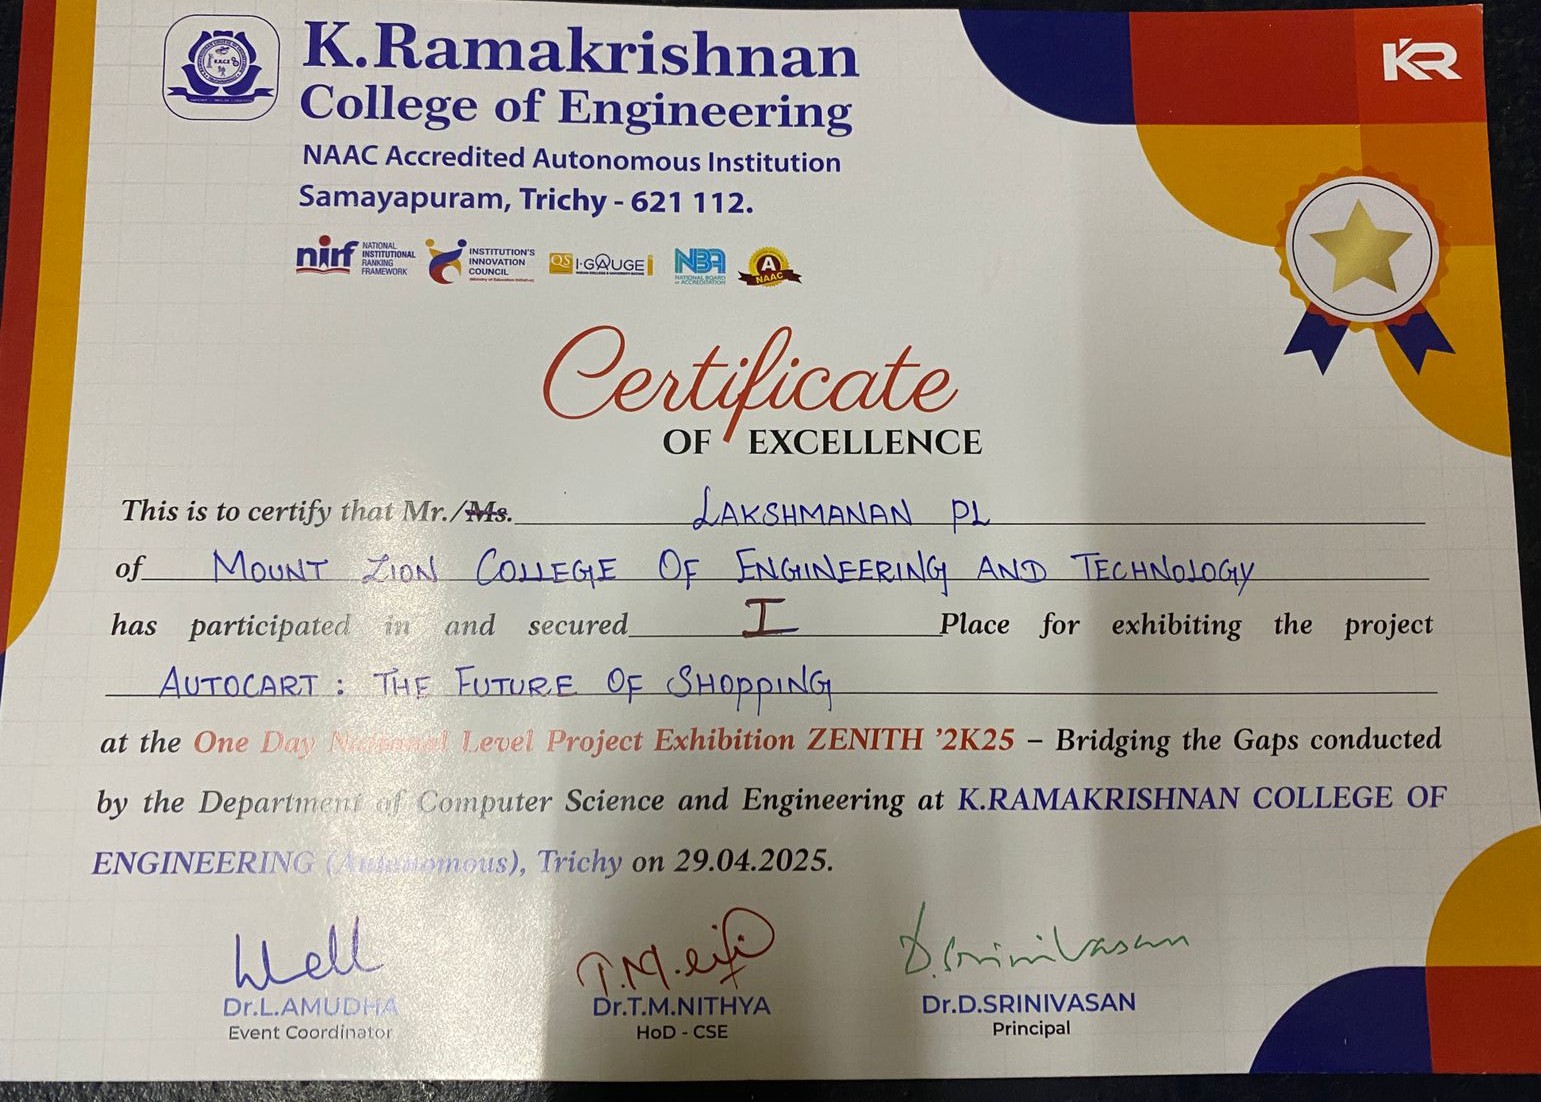 K.Ramakrishnan
College of Engineering
NAAC Accredited Autonomous Institution
Samayapuram, Trichy - 621 112.
KR
nirf NATIONAL INSTITUTIONAL RANKING FRAMEWORK
INSTITUTION'S INNOVATION COUNCIL
QS I·GAUGE
NBA NATIONAL BOARD of ACCREDITATION
A NAAC
Certificate
OF EXCELLENCE
This is to certify that Mr./Ms. LAKSHMANAN PL
of MOUNT ZION COLLEGE OF ENGINEERING AND TECHNOLOGY
has participated in and secured I Place for exhibiting the project
AUTOCART : THE FUTURE OF SHOPPING
at the One Day National Level Project Exhibition ZENITH '2K25 – Bridging the Gaps conducted
by the Department of Computer Science and Engineering at K.RAMAKRISHNAN COLLEGE OF
ENGINEERING (Autonomous), Trichy on 29.04.2025.
D.Srinivasan
Dr.L.AMUDHA Dr.T.M.NITHYA Dr.D.SRINIVASAN
Event Coordinator HoD - CSE Principal